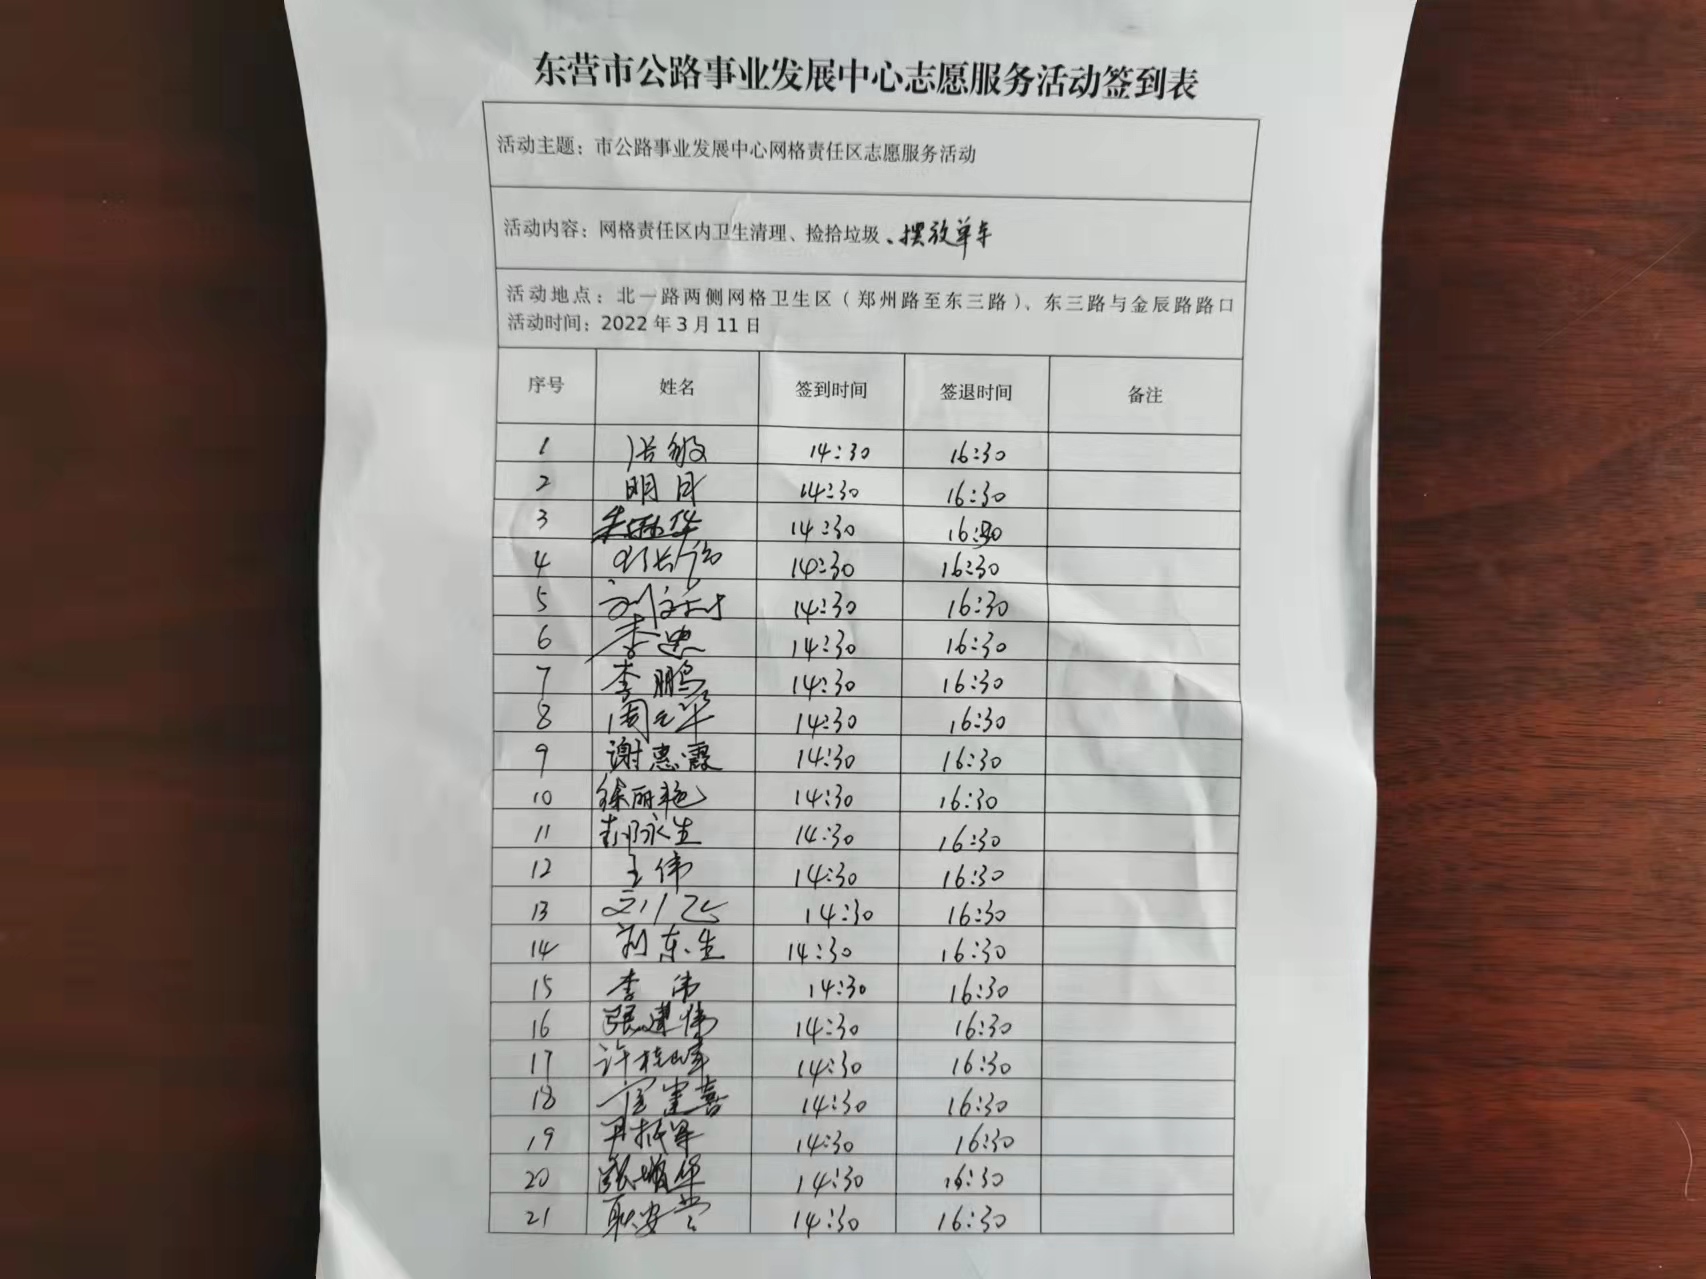 东营市公路事业发展中心志愿服务活动签到表
活动主题：市公路事业发展中心网格责任区志愿服务活动
活动内容：网格责任区内卫生清理、捡拾垃圾、摆放单车
活动地点：北一路两侧网格卫生区（郑州路至东三路）、东三路与金辰路路口
活动时间：2022年3月11日
序号 姓名 签到时间 签退时间 备注
1 张敏 14:30 16:30
2 明月 14:30 16:30
3 14:30 16:30
4 14:30 16:30
5 14:30 16:30
6 李忠 14:30 16:30
7 李鹏 14:30 16:30
8 周元华 14:30 16:30
9 谢惠霞 14:30 16:30
10 徐丽艳 14:30 16:30
11 14:30 16:30
12 王伟 14:30 16:30
13 14:30 16:30
14 刘东生 14:30 16:30
15 李伟 14:30 16:30
16 张建伟 14:30 16:30
17 14:30 16:30
18 14:30 16:30
19 14:30 16:30
20 14:30 16:30
21 耿安营 14:30 16:30